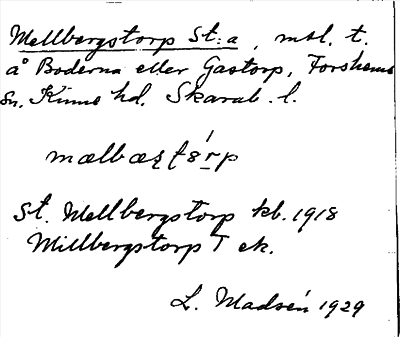 Mellbergstorp St:a, mtl. t.
å Boderna eller Gastorp, Forshems
sn. Kinne hd. Skarab. l.
St. Mellbergstorp kb. 1918
Millbergstorp T ek.
L. Madsén 1929